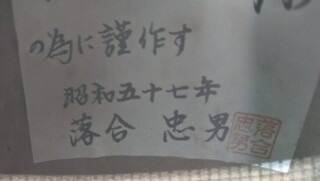 の為に謹作す
昭和五十七年
落合 忠男
落合
忠男